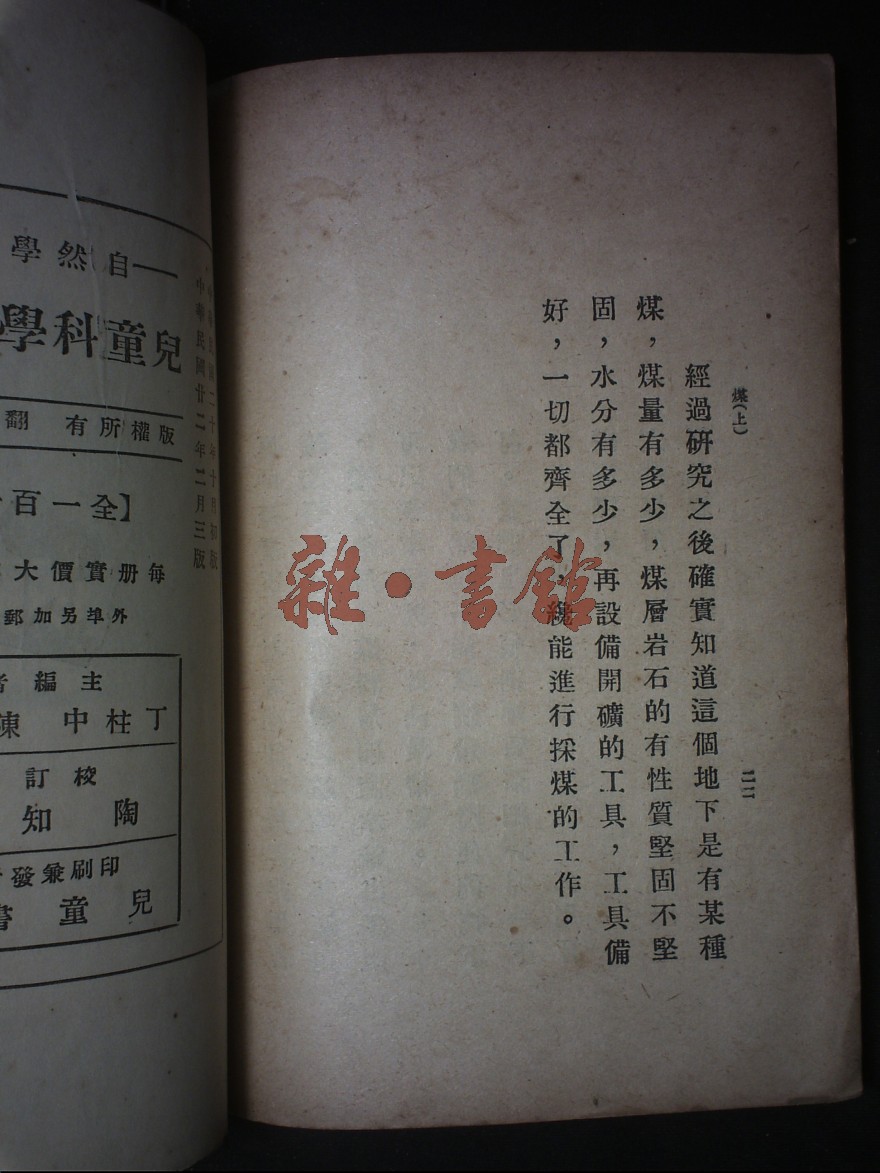 煤(上)
二二
經過硏究之後確實知道這個地下是有某種
煤，煤量有多少，煤層岩石的有性質堅固不堅
固，水分有多少，再設備開礦的工具，工具備
好，一切都齊全了，纔能進行採煤的工作。
雜·書館
中華民國二十年十月初版
中華民國廿二年二月三版
自然學
兒童科學
版權所有 翻
【全一百
每册實價大
外埠另加郵
主編者
丁柱中 陳
校訂
陶知
印刷兼發
兒童書